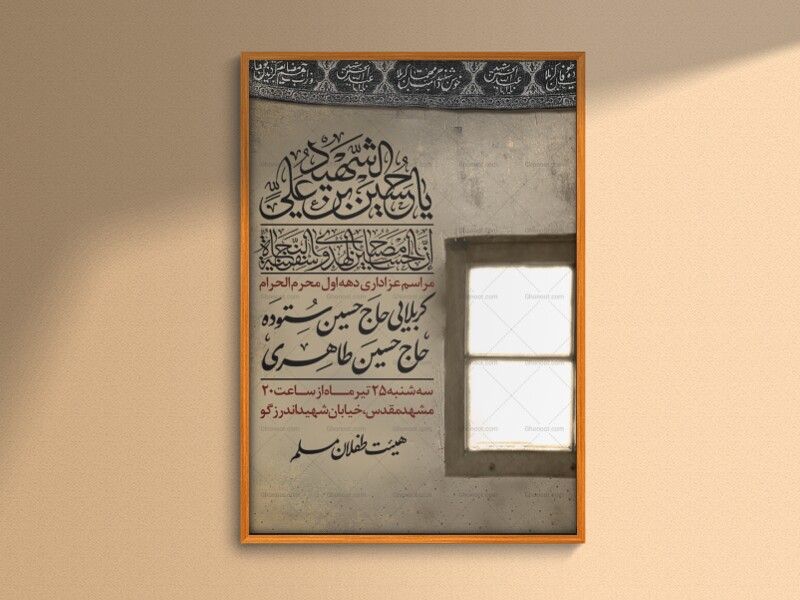 یا حسین بن علی الشهید
ان الحسین مصباح الهدی و سفینة النجاة
مراسم عزاداری دهه اول محرم الحرام
کربلایی حاج حسین ستوده
حاج حسین طاهری
سه شنبه ۲۵ تیر ماه از ساعت ۲۰
مشهد مقدس، خیابان شهید اندرزگو
هیئت طفلان مسلم
Ghonoot.com